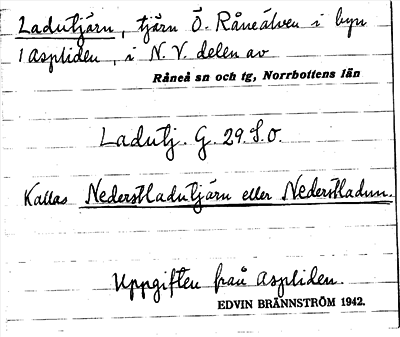 Ladutjärn, tjärn Ö. Råneälven i byn
1 Aspliden, i N.V. delen av
Råneå sn och tg, Norrbottens län
Ladutj. G. 29. S.O.
Kallas Nederstladutjärn eller Nederstladun.
Uppgiften från Aspliden.
EDVIN BRÄNNSTRÖM 1942.